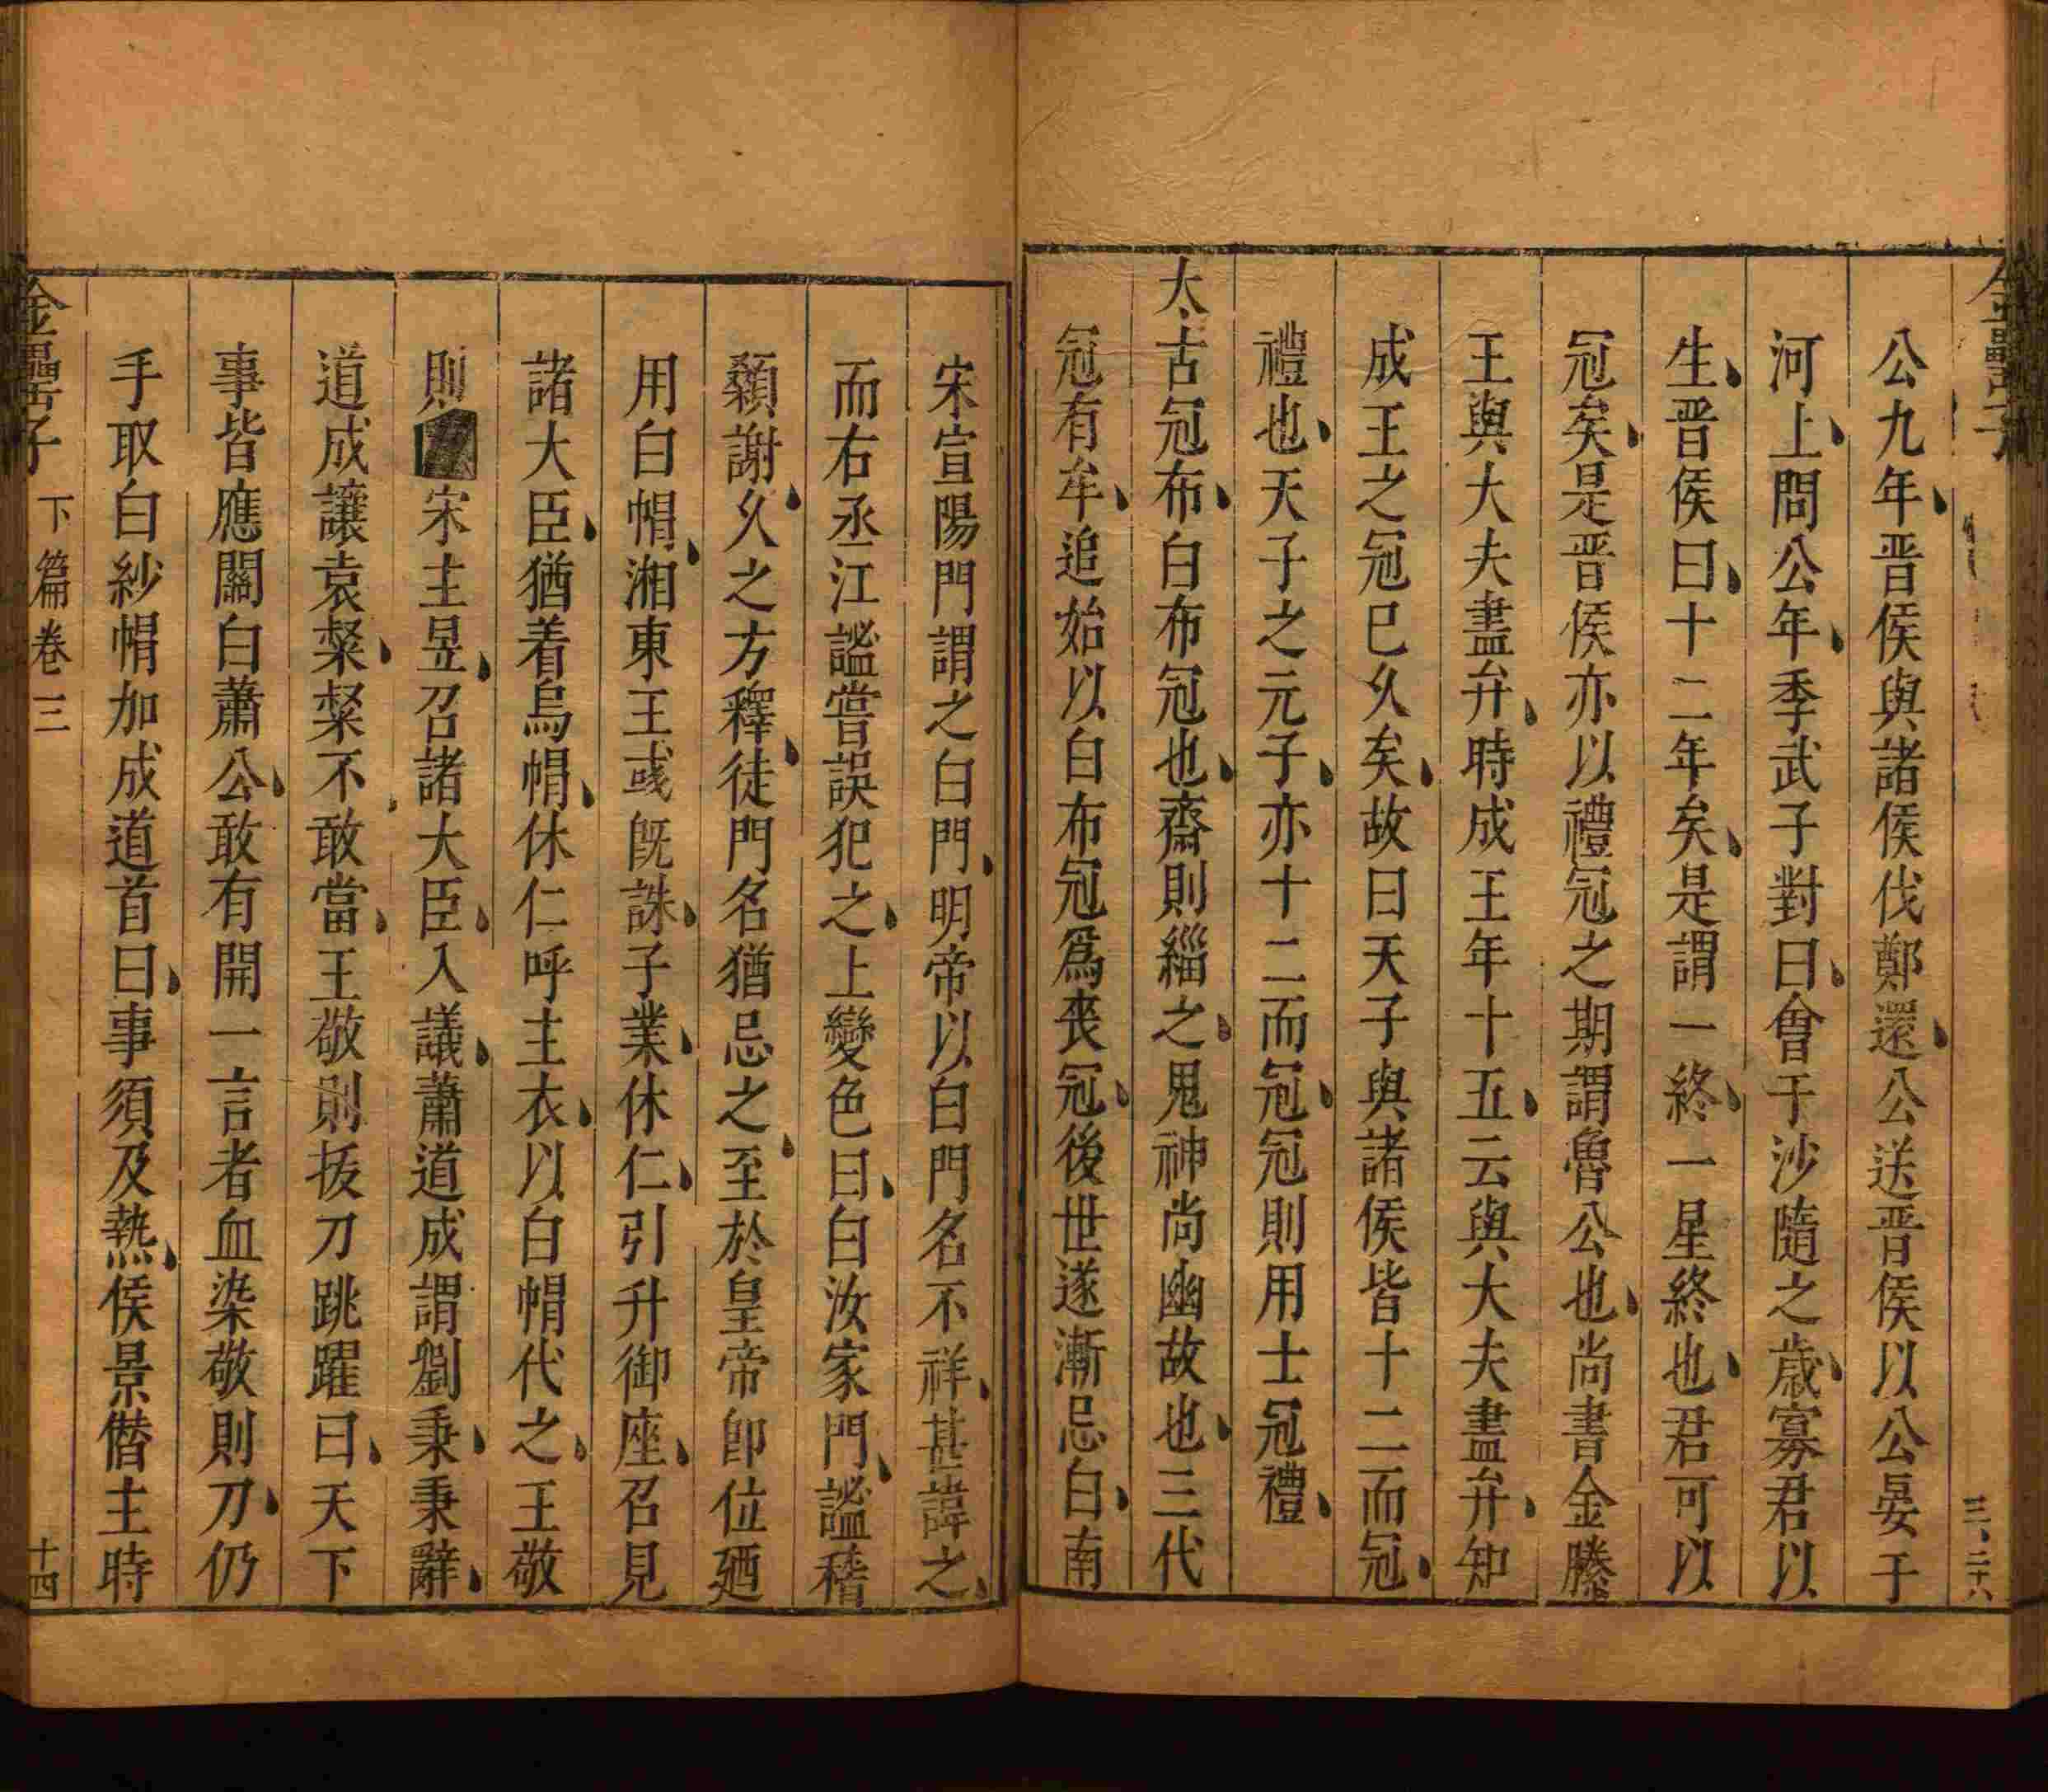 金罍子
公九年晋侯與諸侯伐鄭還公送晋侯以公晏于
河上問公年季武子對曰會于沙隨之歲寡君以
生晋侯曰十二年矣是謂一終一星終也君可以
冠矣是晋侯亦以禮冠之期謂魯公也尚書金縢
王與大夫盡弁時成王年十五云與大夫盡弁知
成王之冠巳久矣故曰天子與諸侯皆十二而冠
禮也天子之元子亦十二而冠冠則用士冠禮
太古冠布白布冠也齋則緇之鬼神尚幽故也三代
冠有牟追始以白布冠爲喪冠後世遂漸忌白南
宋宣陽門謂之白門明帝以白門名不祥甚諱之
而右丞江謐嘗誤犯之上變色曰白汝家門謐稽
顙謝久之方釋徒門名猶忌之至於皇帝卽位廼
用白帽湘東王彧旣誅子業休仁引升御座召見
諸大臣猶着烏帽休仁呼主衣以白帽代之王敬
則宋主昱召諸大臣入議蕭道成謂劉秉秉辭
道成讓袁粲粲不敢當王敬則拔刀跳躍曰天下
事皆應關白蕭公敢有開一言者血染敬則刀仍
手取白紗帽加成道首曰事須及熱侯景僭主時
金罍子 下篇卷三 十四